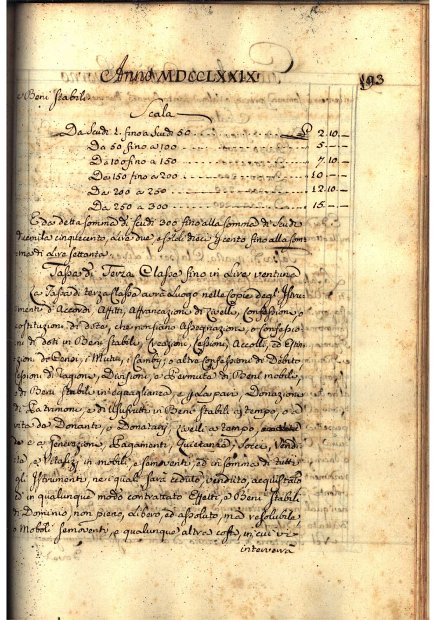 Anno MDCCLXXIX
193
e Beni Stabili
Scala
Da Scudi 1. fino a Scudi 50 £ 2. 10. —
Da 50 fino a 100 5. —
Da 100 fino a 150 7. 10 —
Da 150 fino a 200 10 —
Da 200 a 250 12. 10 —
Da 250 a 300 15. —
E da detta somma di Scudi 300 fino alla somma di Scudi
duemila cinquecento, Lire due, e soldi dieci p cento fino alla som
ma di Lire settanta.
Tassa di Terza Classe fino in Lire ventuna
La Tassa di terza Classe avrà Luogo nelle Copie degl' Istru
menti d'Accordi, Affitti, Affrancazioni di Livelli, Confessioni, e
costituzioni di dote, che non siano Assegnazioni, o confessio
ni di doti in Beni Stabili, Creazioni, Cessioni, Accolli, ed Estin
zioni di Censi, i Mutui, i Cambj, e altre Confessioni di Debito
Cessioni di ragione, Divisioni, e Permuta di Beni mobili,
e di Beni Stabili in eguaglianza, e alla pari, Donazione
di Patrimonj, e di Usufrutti in Beni Stabili a tempo, o a
vita da Donanti, o Donatarj, Livelli a tempo,
e a generazione, Pagamenti, Quietanze, Soccite, Vendi
te, e Vitalizj in mobili, e semoventi, ed in somma di tutti
gli Istrumenti, nei quali sarà ceduto, venduto, acquistato
o in qualunque modo contrattato Effetti, e Beni Stabili
di Dominio, non pieno, Libero, ed assoluto, mà resolubile,
e Mobili semoventi, e qualunque altra cosa, in cui vi
interverrà